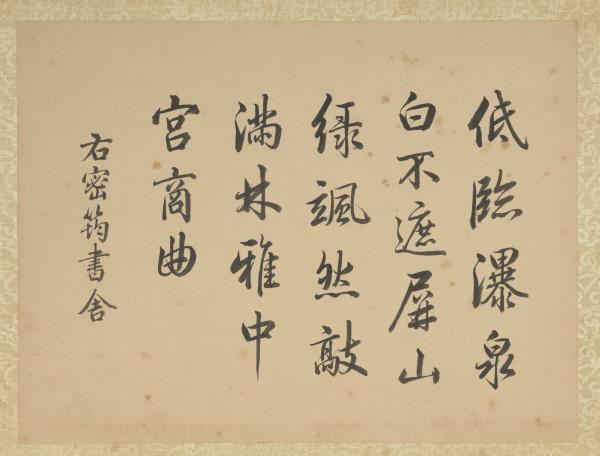 低臨瀑泉
白不遮屏山
綠颯然敲
滿林雅中
宮商曲
右密筠書舍